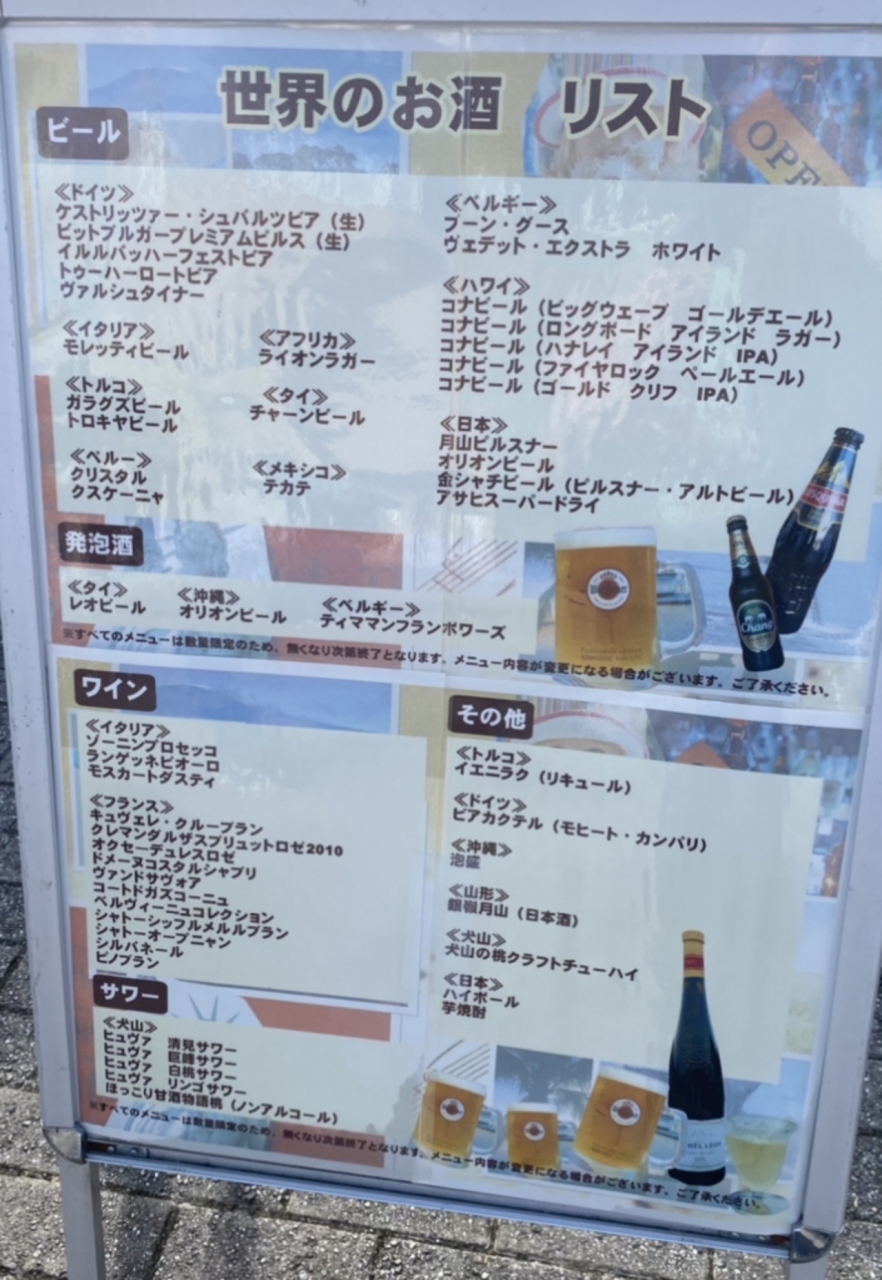 世界のお酒 リスト
OPE
ビール
≪ドイツ≫
ケストリッツァー・シュバルツビア（生）
ビットブルガープレミアムピルス（生）
イルルバッハーフェストビア
トゥーハーロートビア
ヴァルシュタイナー
≪イタリア≫
モレッティビール
≪アフリカ≫
ライオンラガー
≪トルコ≫
ガラグズビール
トロキヤビール
≪タイ≫
チャーンビール
≪ペルー≫
クリスタル
クスケーニャ
≪メキシコ≫
テカテ
≪ベルギー≫
ブーン・グース
ヴェデット・エクストラ ホワイト
≪ハワイ≫
コナビール（ビッグウェーブ ゴールデエール）
コナビール（ロングボード アイランド ラガー）
コナビール（ハナレイ アイランド IPA）
コナビール（ファイヤロック ペールエール）
コナビール（ゴールド クリフ IPA）
≪日本≫
月山ピルスナー
オリオンビール
金シャチビール（ピルスナー・アルトビール）
アサヒスーパードライ
発泡酒
≪タイ≫
レオビール
≪沖縄≫
オリオンビール
≪ベルギー≫
ティママンフランボワーズ
Chang
※すべてのメニューは数量限定のため、無くなり次第終了となります。メニュー内容が変更になる場合がございます。ご了承ください。
ワイン
≪イタリア≫
ゾーニンプロセッコ
ランゲッネビオーロ
モスカートダスティ
≪フランス≫
キュヴェレ・クルーブラン
クレマンダルザスブリュットロゼ2010
オクセーデュレスロゼ
ドメーヌコスタルシャブリ
ヴァンドサヴォア
コートドガズコーニュ
ベルヴィーニュコレクション
シャトーシッフルメルルブラン
シャトーオーブニャン
シルバネール
ピノブラン
サワー
≪犬山≫
ヒュヴァ 清見サワー
ヒュヴァ 巨峰サワー
ヒュヴァ 白桃サワー
ヒュヴァ リンゴサワー
ほっこり甘酒物語桃（ノンアルコール）
その他
≪トルコ≫
イエニラク（リキュール）
≪ドイツ≫
ビアカクテル（モヒート・カンパリ）
≪沖縄≫
泡盛
≪山形≫
銀嶺月山（日本酒）
≪犬山≫
犬山の桃クラフトチューハイ
≪日本≫
ハイボール
芋焼酎
※すべてのメニューは数量限定のため、無くなり次第終了となります。メニュー内容が変更になる場合がございます。ご了承ください。